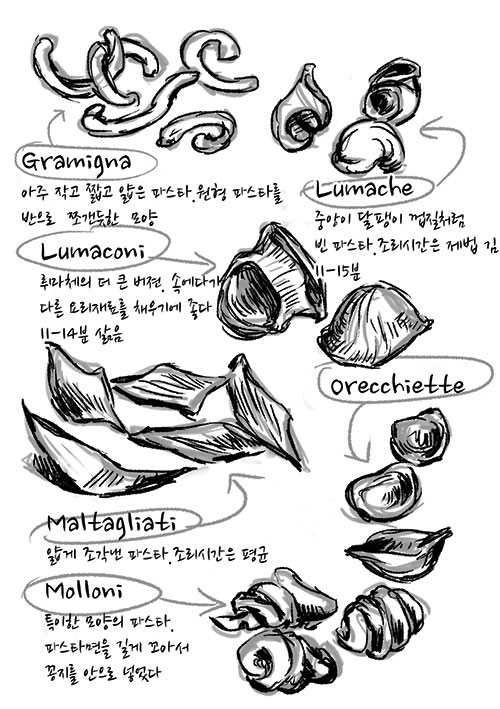 Gramigna
아주 작고 짧고 얇은 파스타. 원형 파스타를
반으로 쪼갠듯한 모양
Lumache
중앙이 달팽이 껍질처럼
빈 파스타. 조리시간은 제법 김
11-15분
Lumaconi
루마체의 더 큰 버젼. 속에다가
다른 요리재료를 채우기에 좋다
11-14분 삶음
Orecchiette
Maltagliati
얇게 조각번 파스타. 조리시간은 평균
Molloni
특이한 모양의 파스타.
파스타면을 길게 꼬아서
꽁지를 안으로 넣었다